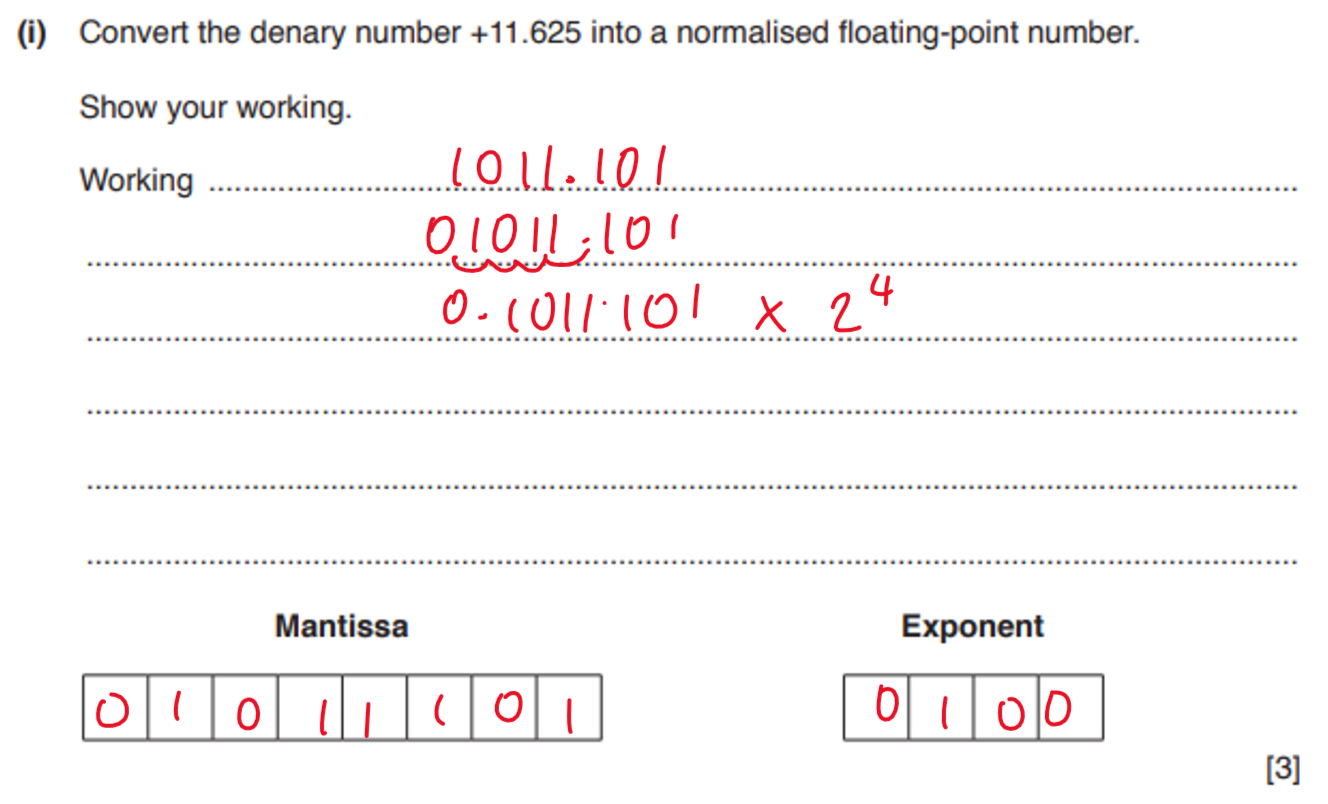 (i) Convert the denary number +11.625 into a normalised floating-point number.
Show your working.
Working 1011.101
01011.101
0.1011.101 x 2⁴
Mantissa Exponent
0 1 0 1 1 1 0 1 0 1 0 0
[3]